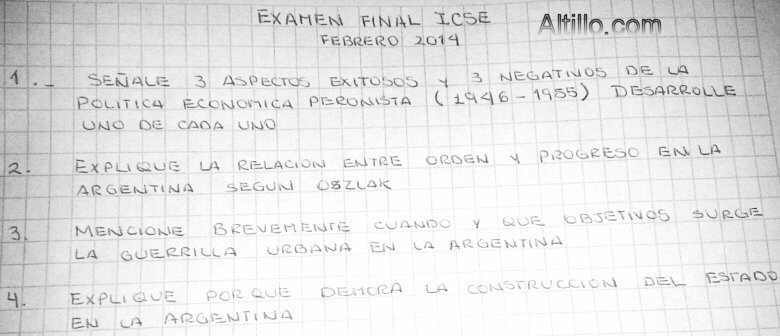 EXAMEN FINAL ICSE
Altillo.com
FEBRERO 2014
1.- SEÑALE 3 ASPECTOS EXITOSOS Y 3 NEGATIVOS DE LA
POLITICA ECONOMICA PERONISTA (1946-1955) DESARROLLE
UNO DE CADA UNO
2. EXPLIQUE LA RELACION ENTRE ORDEN Y PROGRESO EN LA
ARGENTINA SEGUN OSZLAK
3. MENCIONE BREVEMENTE CUANDO Y QUE OBJETIVOS SURGE
LA GUERRILLA URBANA EN LA ARGENTINA
4. EXPLIQUE POR QUE DEMORA LA CONSTRUCCION DEL ESTADO
EN LA ARGENTINA